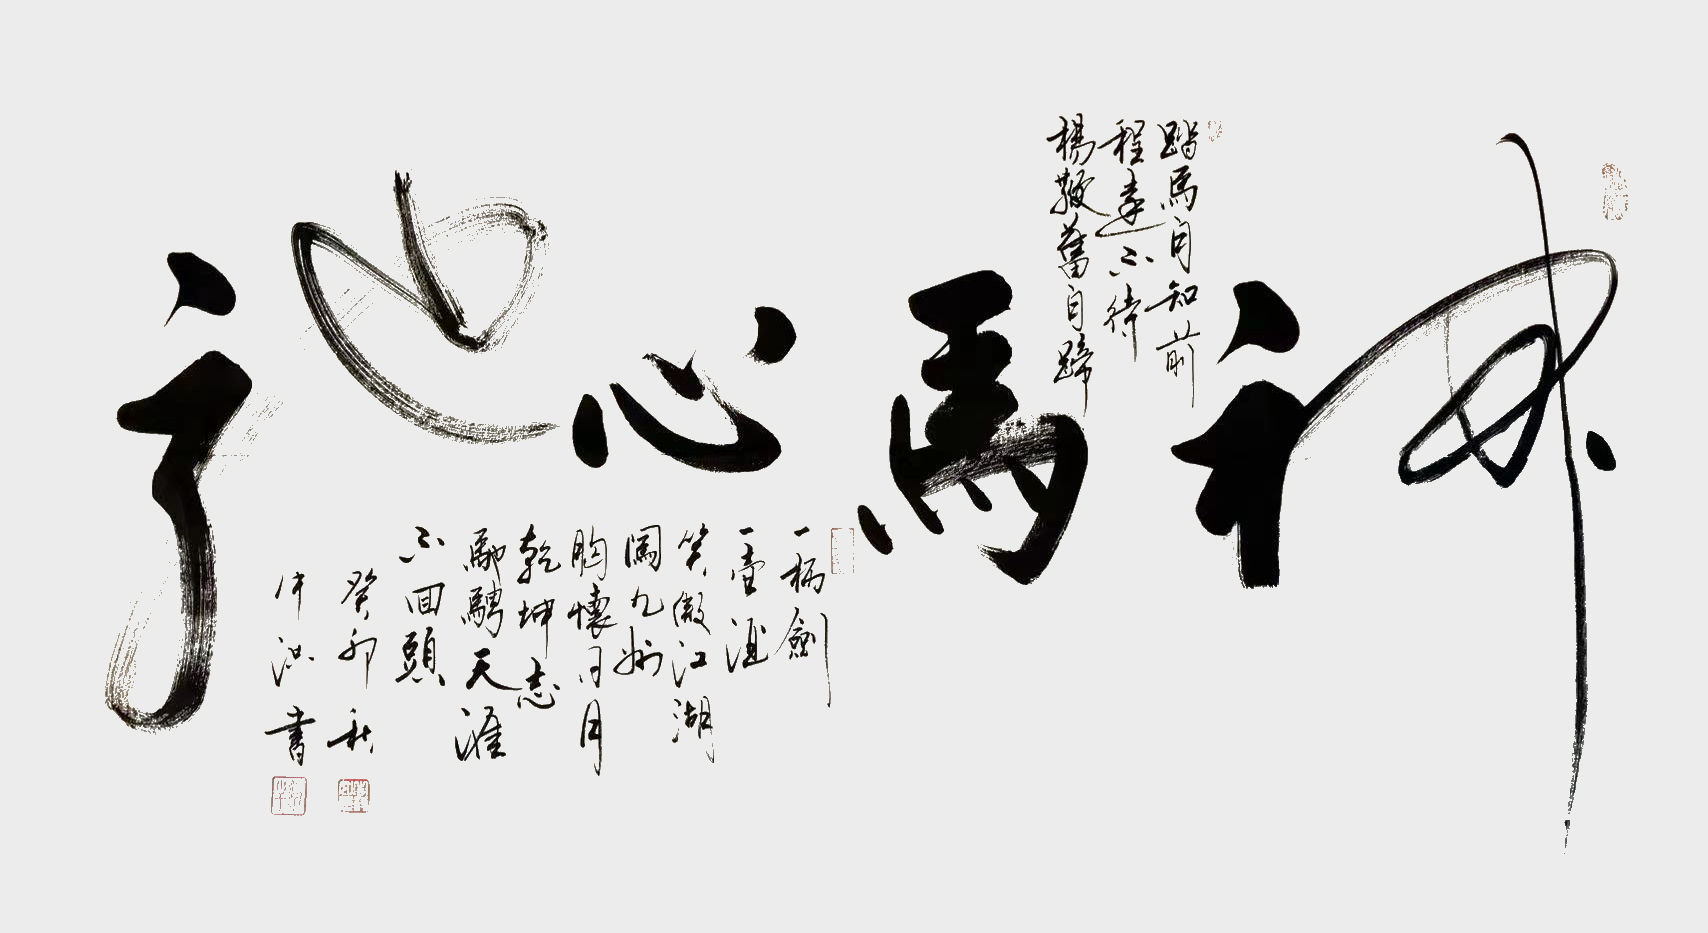 神馬心
踏馬自知前
程遠不待
揚鞭奮自蹄
一柄劍
一壺酒
笑傲江湖
闖九州
胸懷日月
乾坤志
馳騁天涯
不回頭
癸卯秋
洪書